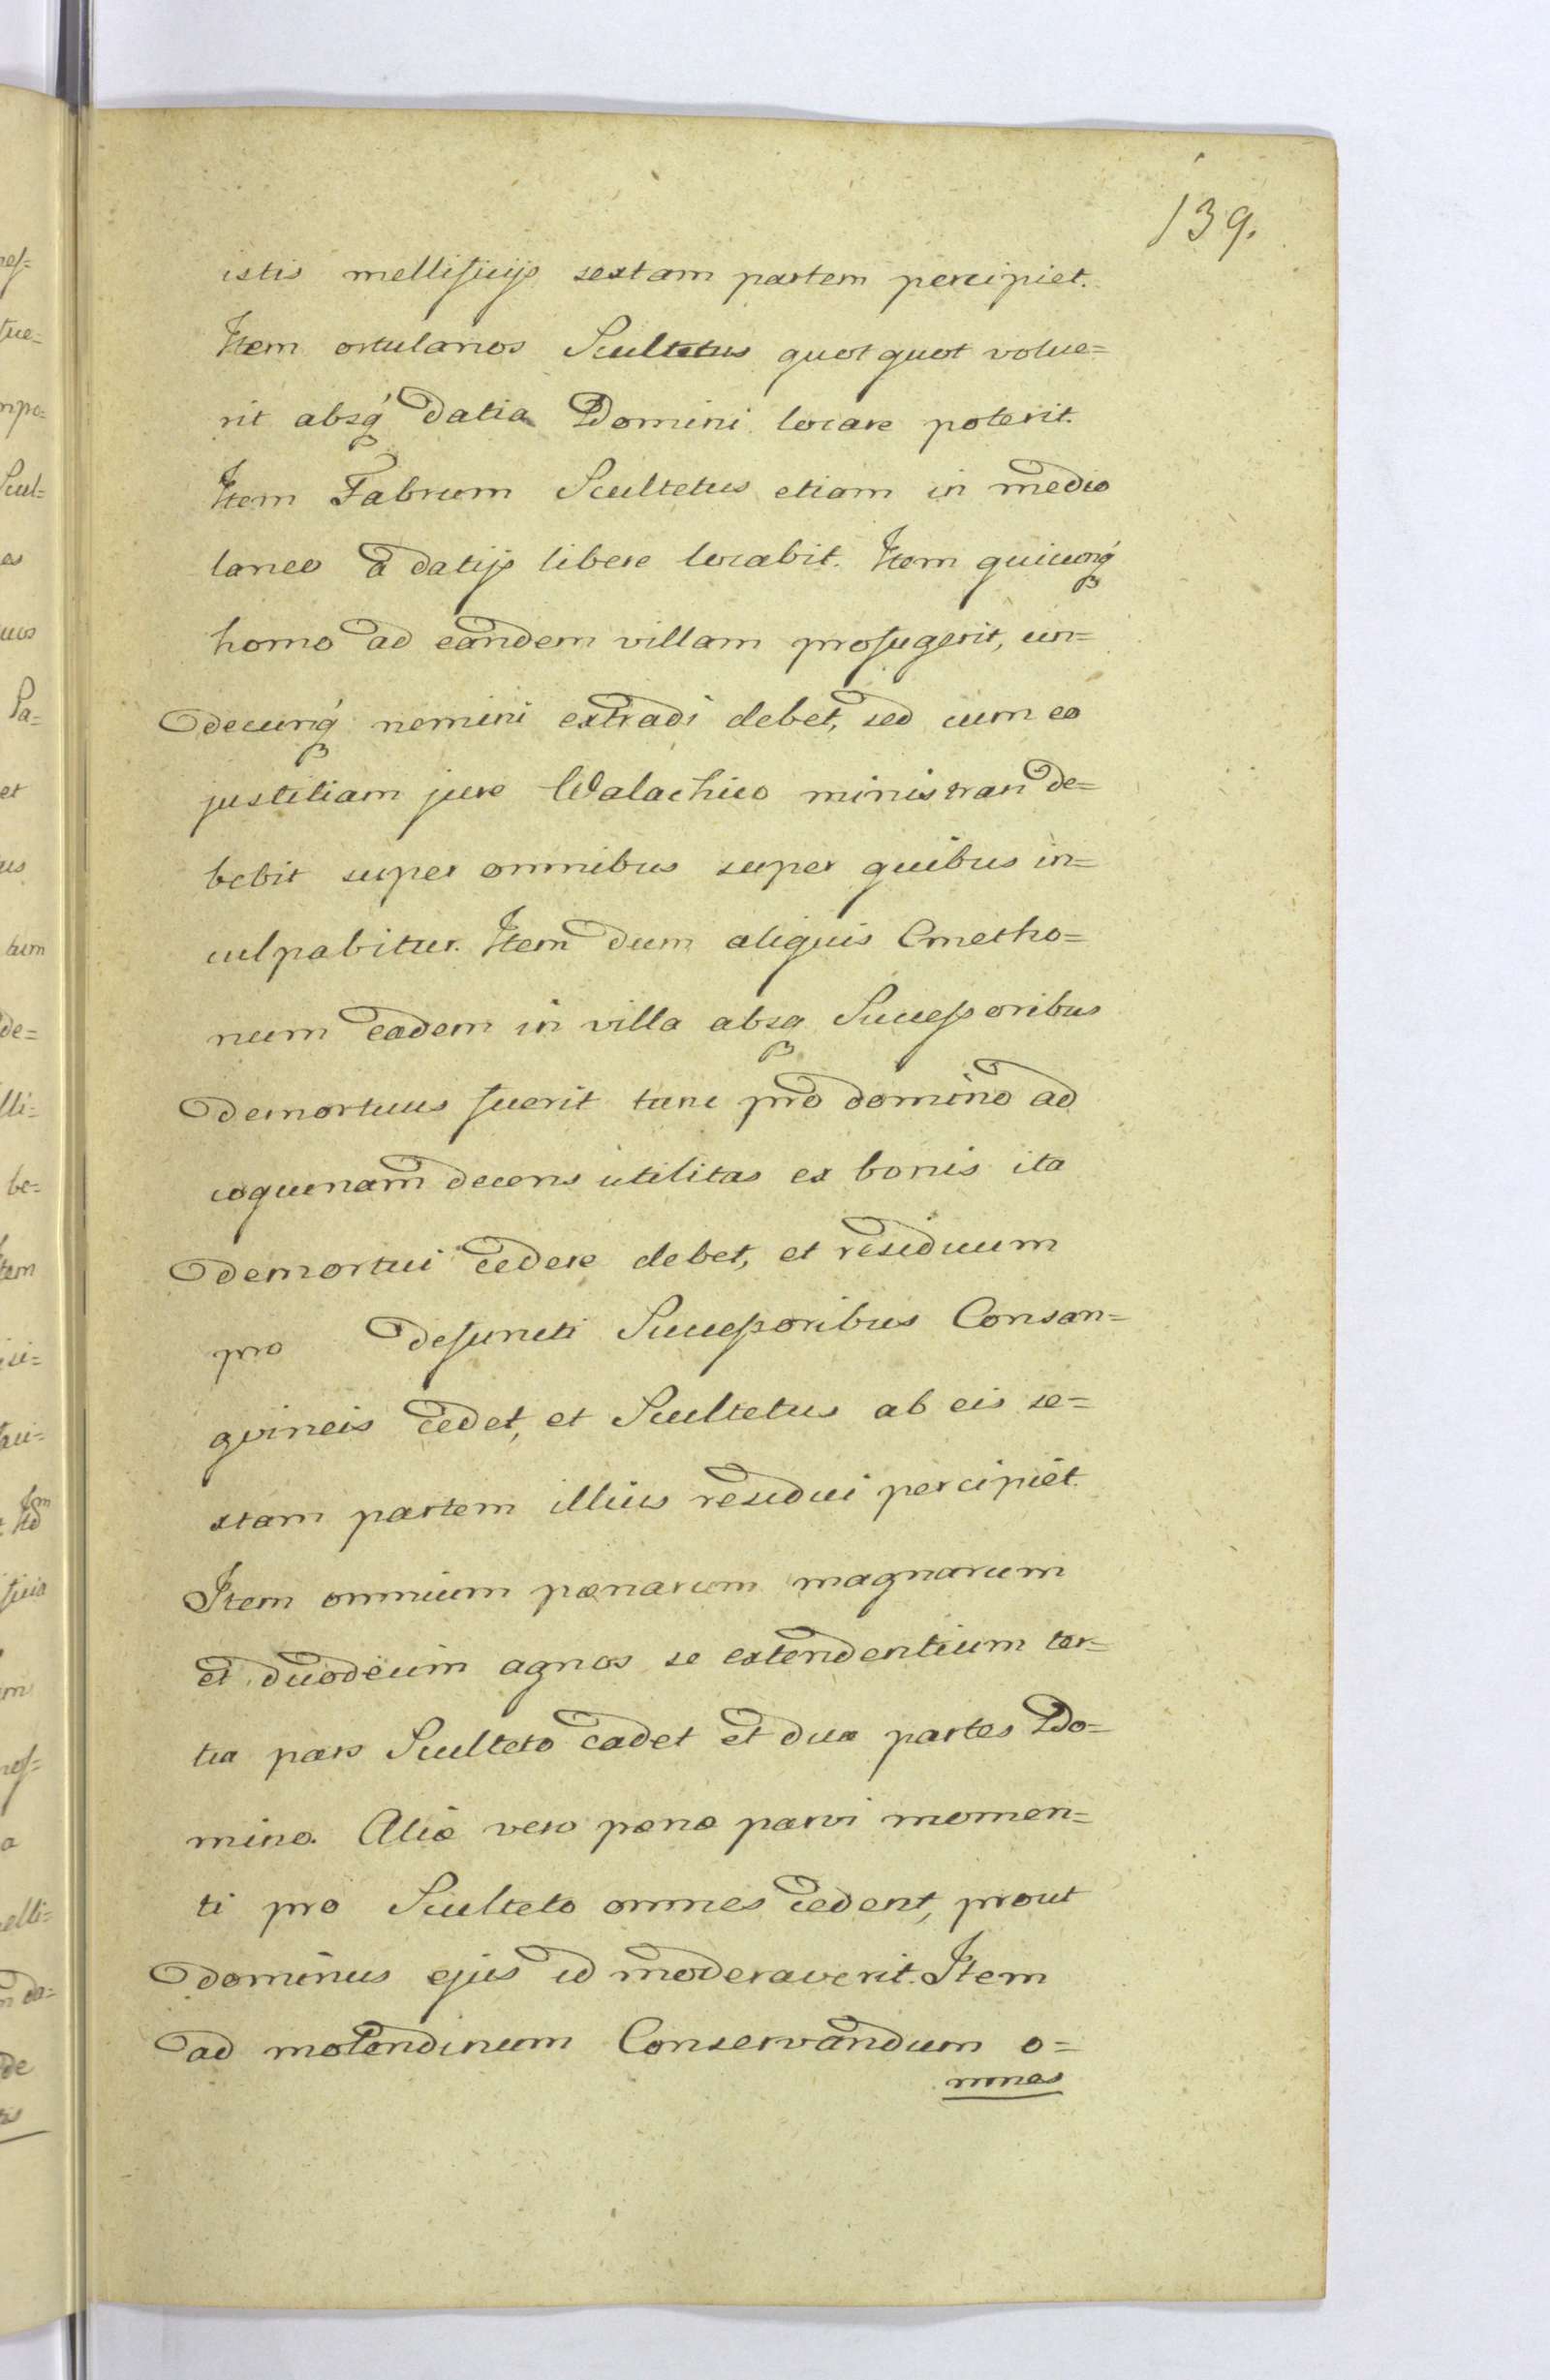 139.
istis mellificijs sextam partem percipiet.
Item ortulanos Scultetus quot quot volue=
rit absq datia Domini locare poterit.
Item Fabrum Scultetus etiam in medio
laneo a datijs libere locabit. Item quicunq
homo ad eandem villam profugerit, un=
decunq nemini extradi debet, sed cum eo
justitiam jure Walachico ministrari de=
bebit super omnibus super quibus in=
culpabitur. Item dum aliquis Cmetho=
num eadem in villa absq Successoribus
demortuus fuerit tunc pro domino ad
coquenam decens utilitas ex bonis ita
demortui cedere debet, et residuum
pro defuncti Successoribus Consan=
gvineis cedet, et Scultetus ab eis se=
xtam partem illius residui percipiet.
Item omnium pœnarum magnarum
et duodecim agnos se extendentium ter=
tia pars Sculteto cadet et duæ partes Do=
mino. Aliæ vero pœnæ parvi momen=
ti pro Sculteto omnes cedent, prout
dominus ejus id moderaverit. Item
ad molendinum Conservandum o=
mnes